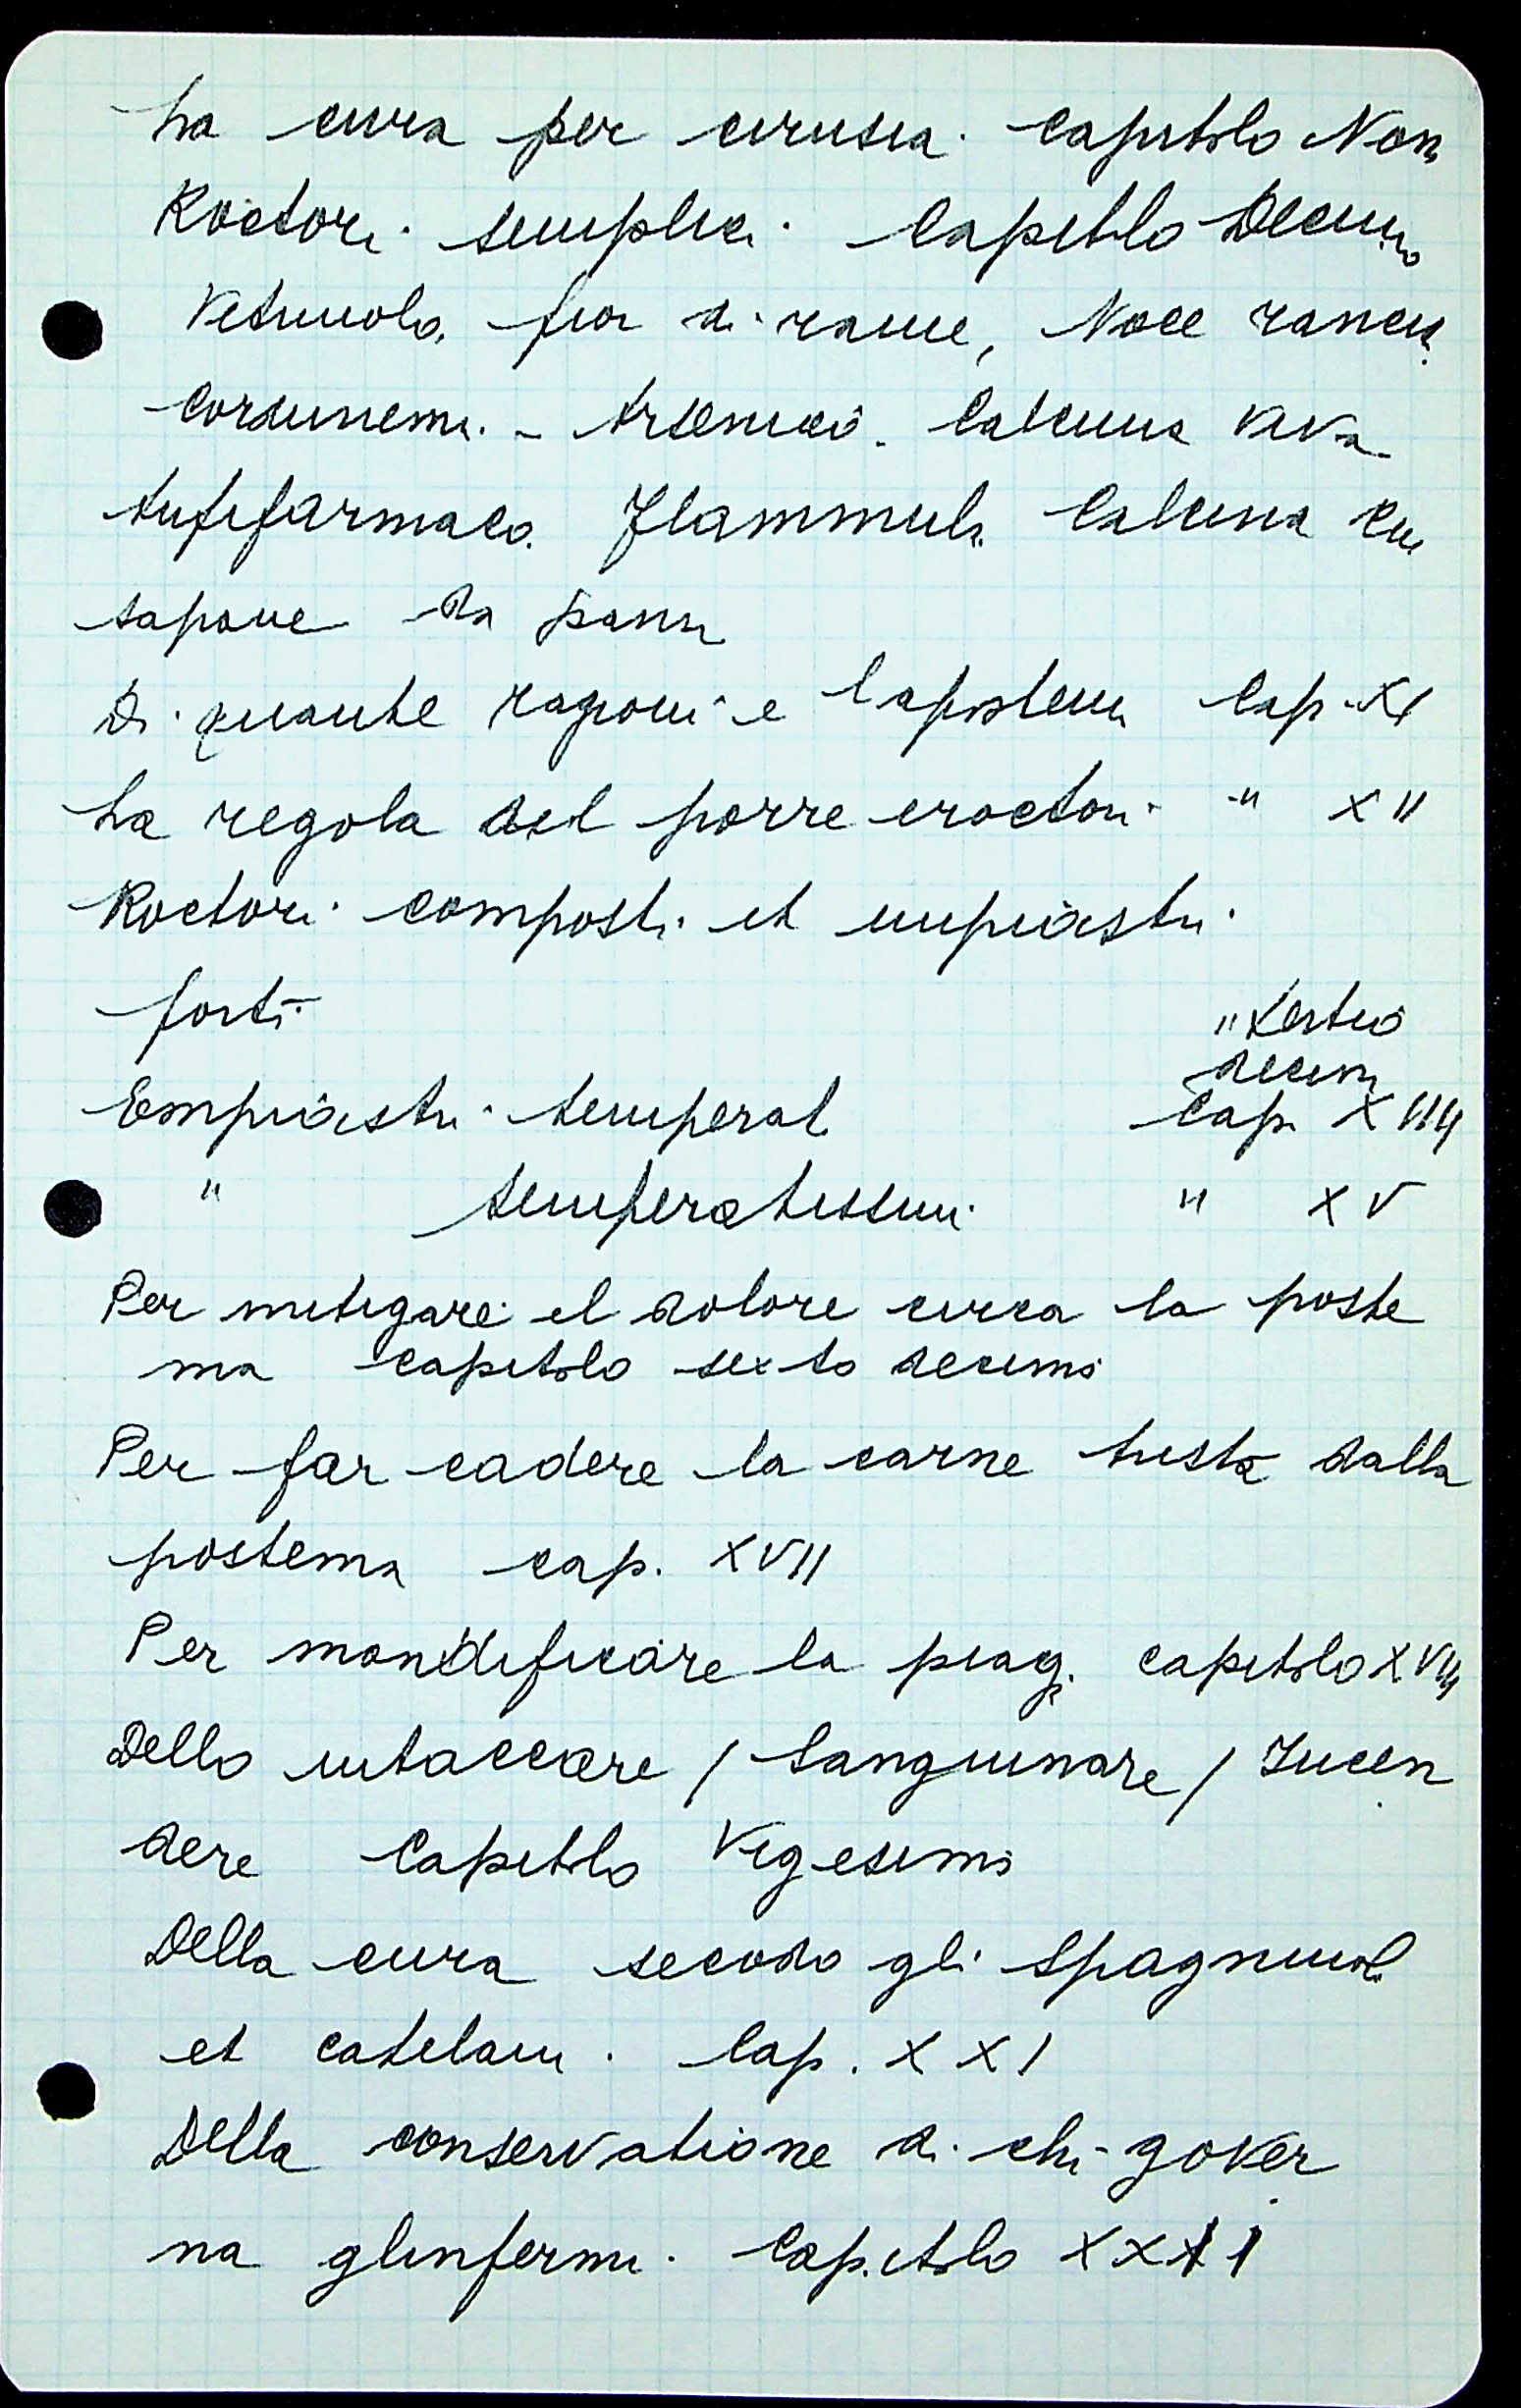 La cura per cirusia. Capitolo Nono
Roctori semplici. Capitolo Decimo
Vetriuolo, fior di rame, Noce rancida
Arsenico. Calcina viva
Flammula. Calcina cum
sapone da panni
Di quante ragioni e lapostema Cap. XI
La regola del porre eroctori " XII
Roctori composti et impiastri
forti " tertio
decimo
Empiastri temperati Cap. XIIII
" temperatissimi " XV
Per mitigare el dolore circa la poste
ma capitolo sexto decimo
Per far cadere la carne trista dalla
postema cap. XVII
Per mondificare la piaga capitolo XVIII
Dello intaccare / Sanguinare / Incen
dere Capitolo Vigesimo
Della cura secodo gli Spagnuoli
et catelani. Cap. XXI
Della conservatione di chi gover
na glinfermi. Capitolo XXII